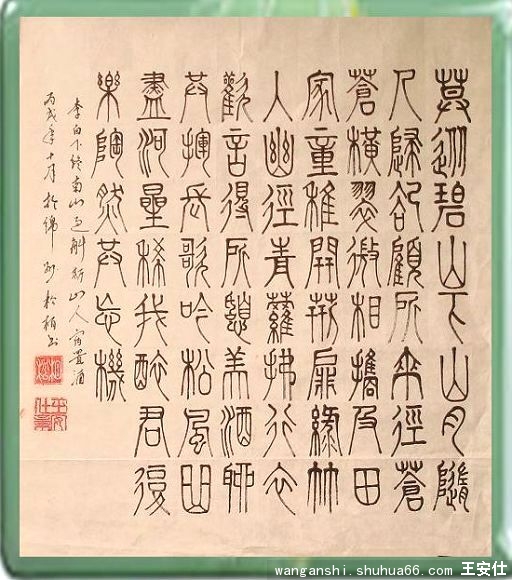 暮從碧山下山月隨
人歸卻顧所來徑蒼
蒼橫翠微相攜及田
家童稚開荊扉綠竹
入幽徑青蘿拂行衣
歡言得所憩美酒聊
共揮長歌吟松風曲
盡河星稀我醉君復
樂陶然共忘機
李白下終南山過斛斯山人宿置酒
丙戌年十月於綿州松柏書
wanganshi.shuhua66.com 王安仕